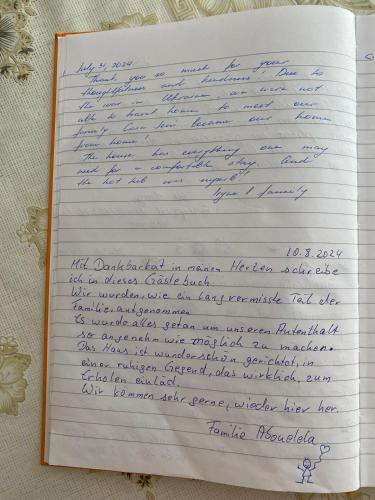 July 31, 2024
Thank you so much for your
thoughtfulness and kindness! Due to
the war in Ukraine, we were not
able to travel home to meet our
family. Casa became our home
from home!
The house has everything one may
need for a comfortable stay. And
the hot tub was superb!
& family
10.8.2024
Mit Dankbarkeit in meinen Herzen schreibe
ich in dieses Gästebuch.
Wir wurden, wie ein lang vermisste Teil der
Familie aufgenommen.
Es wurde alles getan um unseren Aufenthalt
so angenehm wie möglich zu machen.
Das Haus ist wunderschön gerichtet, in
einer ruhigen Gegend, das wirklich, zum
Erholen einläd.
Wir kommen sehr gerne, wieder hier her.
Familie